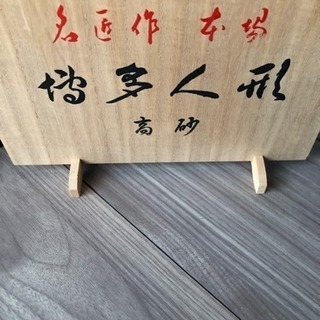 名匠作 本場
博多人形
高砂